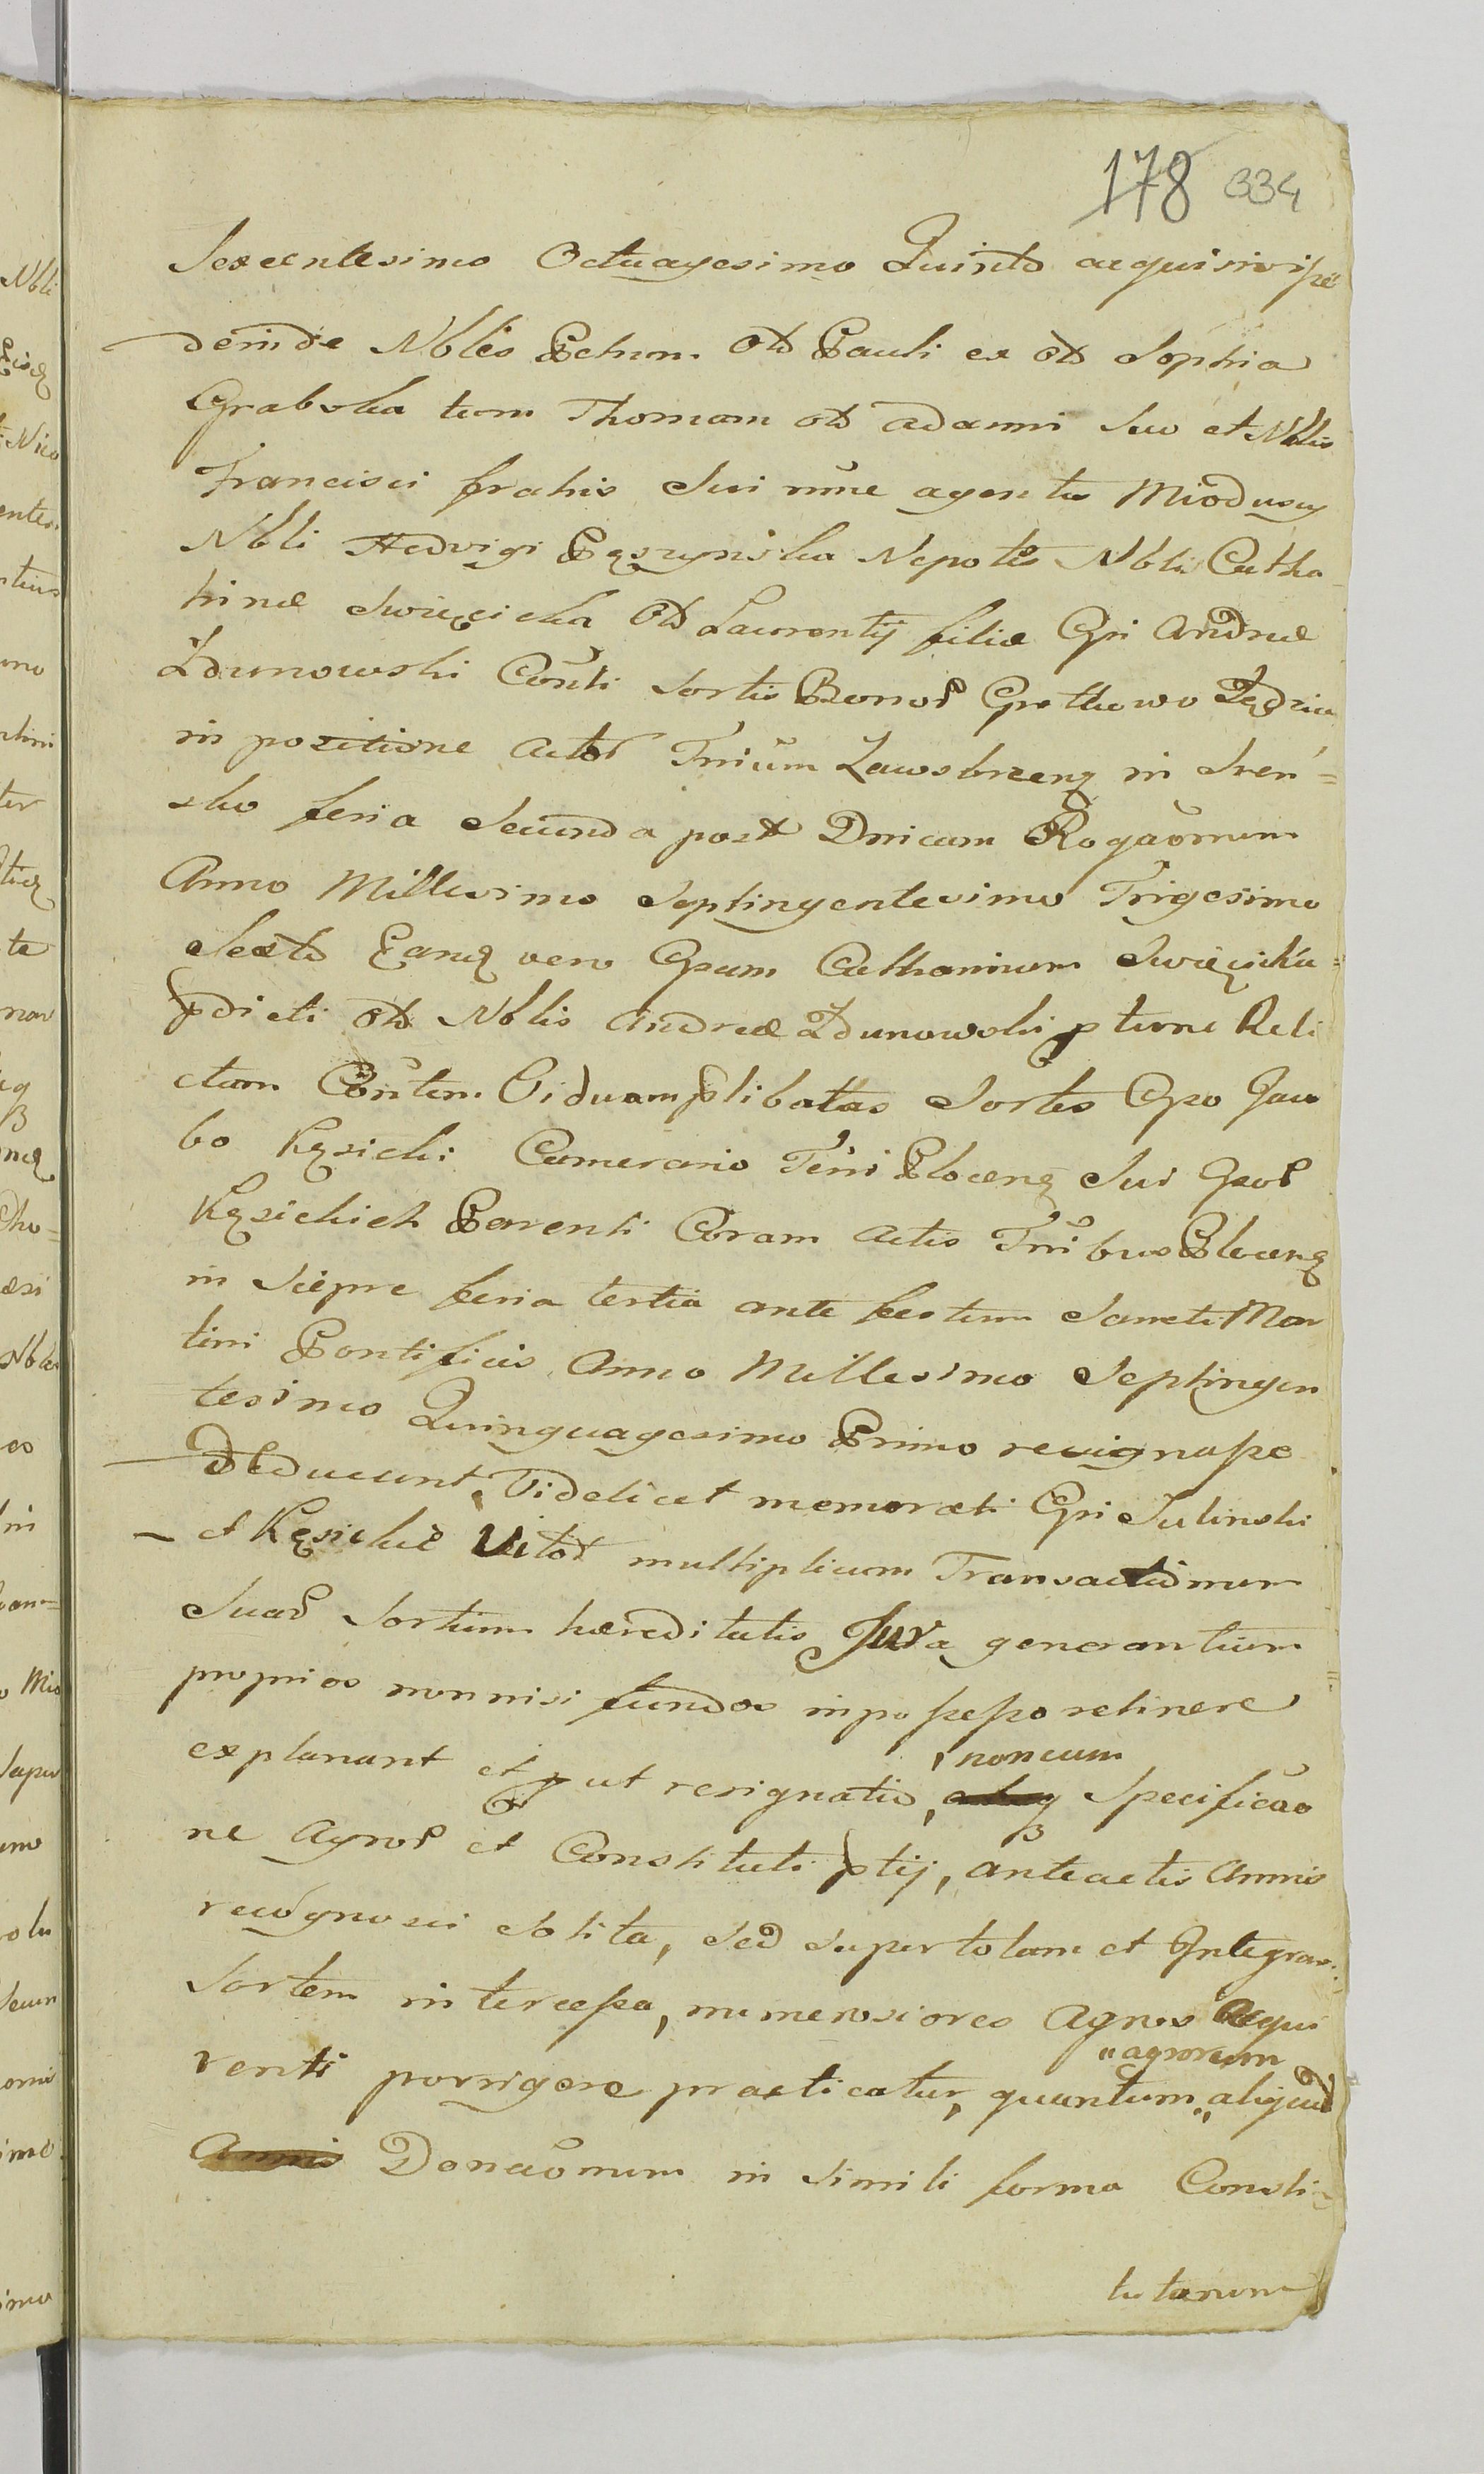 178 334
Sexcentesimo Octuagesimo Quinto acquisivisse
deinde Nobles Petrum otb Pauli ex otb Sophia
Grabska tum Thomam otb Adami suo et Nblis
Francisci fratris sui nñe agentes Miodusq
Nbli Hedvigi Pęszynska Nepotes Nblis Catha
rinæ Swięcicka otb Laurentij filiæ Gsi Andreæ
Zdunowski Coñti sortis Bonoɍ Grotkowo
in positione actoɍ Triūm Zawskrzenꝫ in Sren=
sko feria Secunda post Dnicam Rogãonum
Anno Millesimo Septingentesimo Trigesimo
Sexto Eandꝫ vero Gsam Catharinam Swięcicka=
pdicti otb Nblis Andreæ Zdunowski p tunc Reli
ctam Coñtem Viduam plibatas Sortes Gso Jaco
bo Kęsicki Camerario Terri Plocenꝫ Sui Gsoɍ
Kęsickich Parenti Coram Actis Trribus Plocenꝫ
in Siepre feria tertia ante festum Sancti Mar
tini Pontificis Anno Millesimo Septingen
tesimo Quinquagesimo Primo resignasse
Deducunt, Videlicet memorati Gsi Sulinski
et Kęsickie Vitoɍ multiplicum Transactionum
Suaɍ Sortium hæreditatis Jura generantium
proprios nonnisi fundos in possesso retinere
explanant et put resignatio,
noncum
Specificão
ne Agroɍ et Constituti ptij, anteactis Annis
recognosci solita, sed super totam et Integram
Sortem intercessa, numerosiores Agros Acqui
renti porrigere practicatur, quantum
"agrorum
"aliquid
Annis Donãonum in simili forma Consti=
tutarum